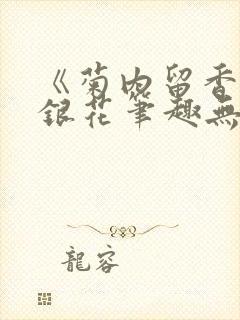 《菊内留香
銀花筆趣無
龍容